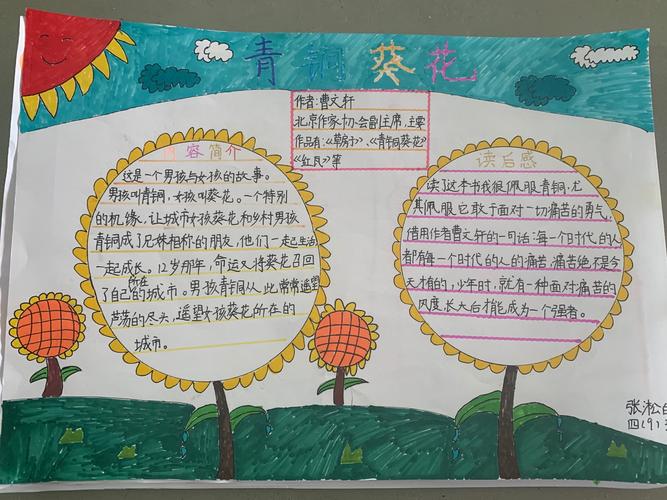 青铜葵花
作者:曹文轩
北京作家协会副主席,主要
作品有:《草房子》、《青铜葵花》
《红瓦》等
内容简介
这是一个男孩与女孩的故事。
男孩叫青铜,女孩叫葵花。一个特别
的机缘,让城市女孩葵花和乡村男孩
青铜成了兄妹相称的朋友,他们一起生活
一起成长。12岁那年,命运又将葵花召回
了自己所在的城市。男孩青铜从此常常遥望
芦荡的尽头,遥望女孩葵花所在的
城市。
读后感
读了这本书我很佩服青铜,尤
其佩服它敢于面对一切痛苦的勇气,
借用作者曹文轩的一句话:每一个时代的人
都有每一个时代的人的痛苦,痛苦绝不是今
天才有的,少年时,就有一种面对痛苦的
风度,长大后才能成为一个强者。
张淞
四(9)